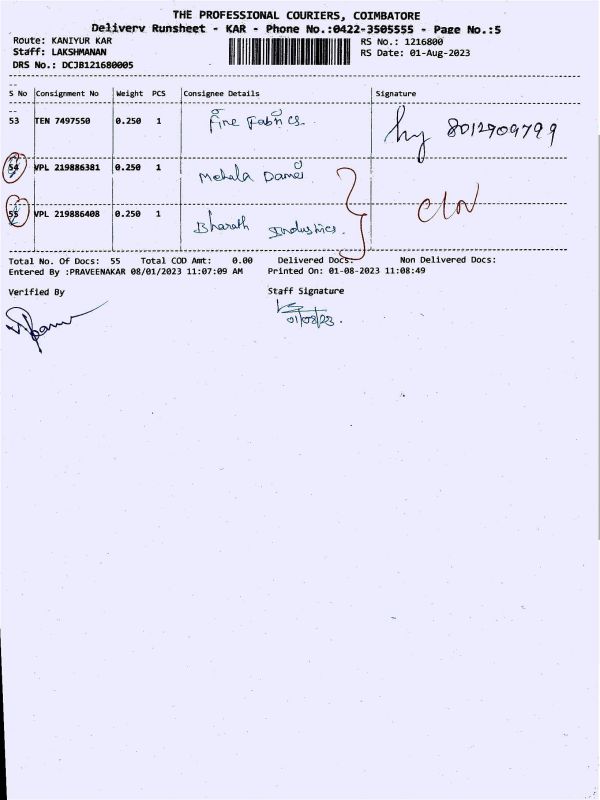 THE PROFESSIONAL COURIERS, COIMBATORE
Delivery Runsheet - KAR - Phone No.:0422-3505555 - Page No.:5
Route: KANIYUR KAR
RS No.: 1216800
Staff: LAKSHMANAN
RS Date: 01-Aug-2023
DRS No.: DCJB121680005
S No Consignment No Weight PCS Consignee Details Signature
53 TEN 7497550 0.250 1 Fine Fabrics. 8012909799
54 VPL 219886381 0.250 1 Mehala Dames
55 VPL 219886408 0.250 1 Bharath Industries.
Total No. Of Docs: 55 Total COD Amt: 0.00 Delivered Docs: Non Delivered Docs:
Entered By :PRAVEENAKAR 08/01/2023 11:07:09 AM Printed On: 01-08-2023 11:08:49
Verified By Staff Signature
01/08/23.